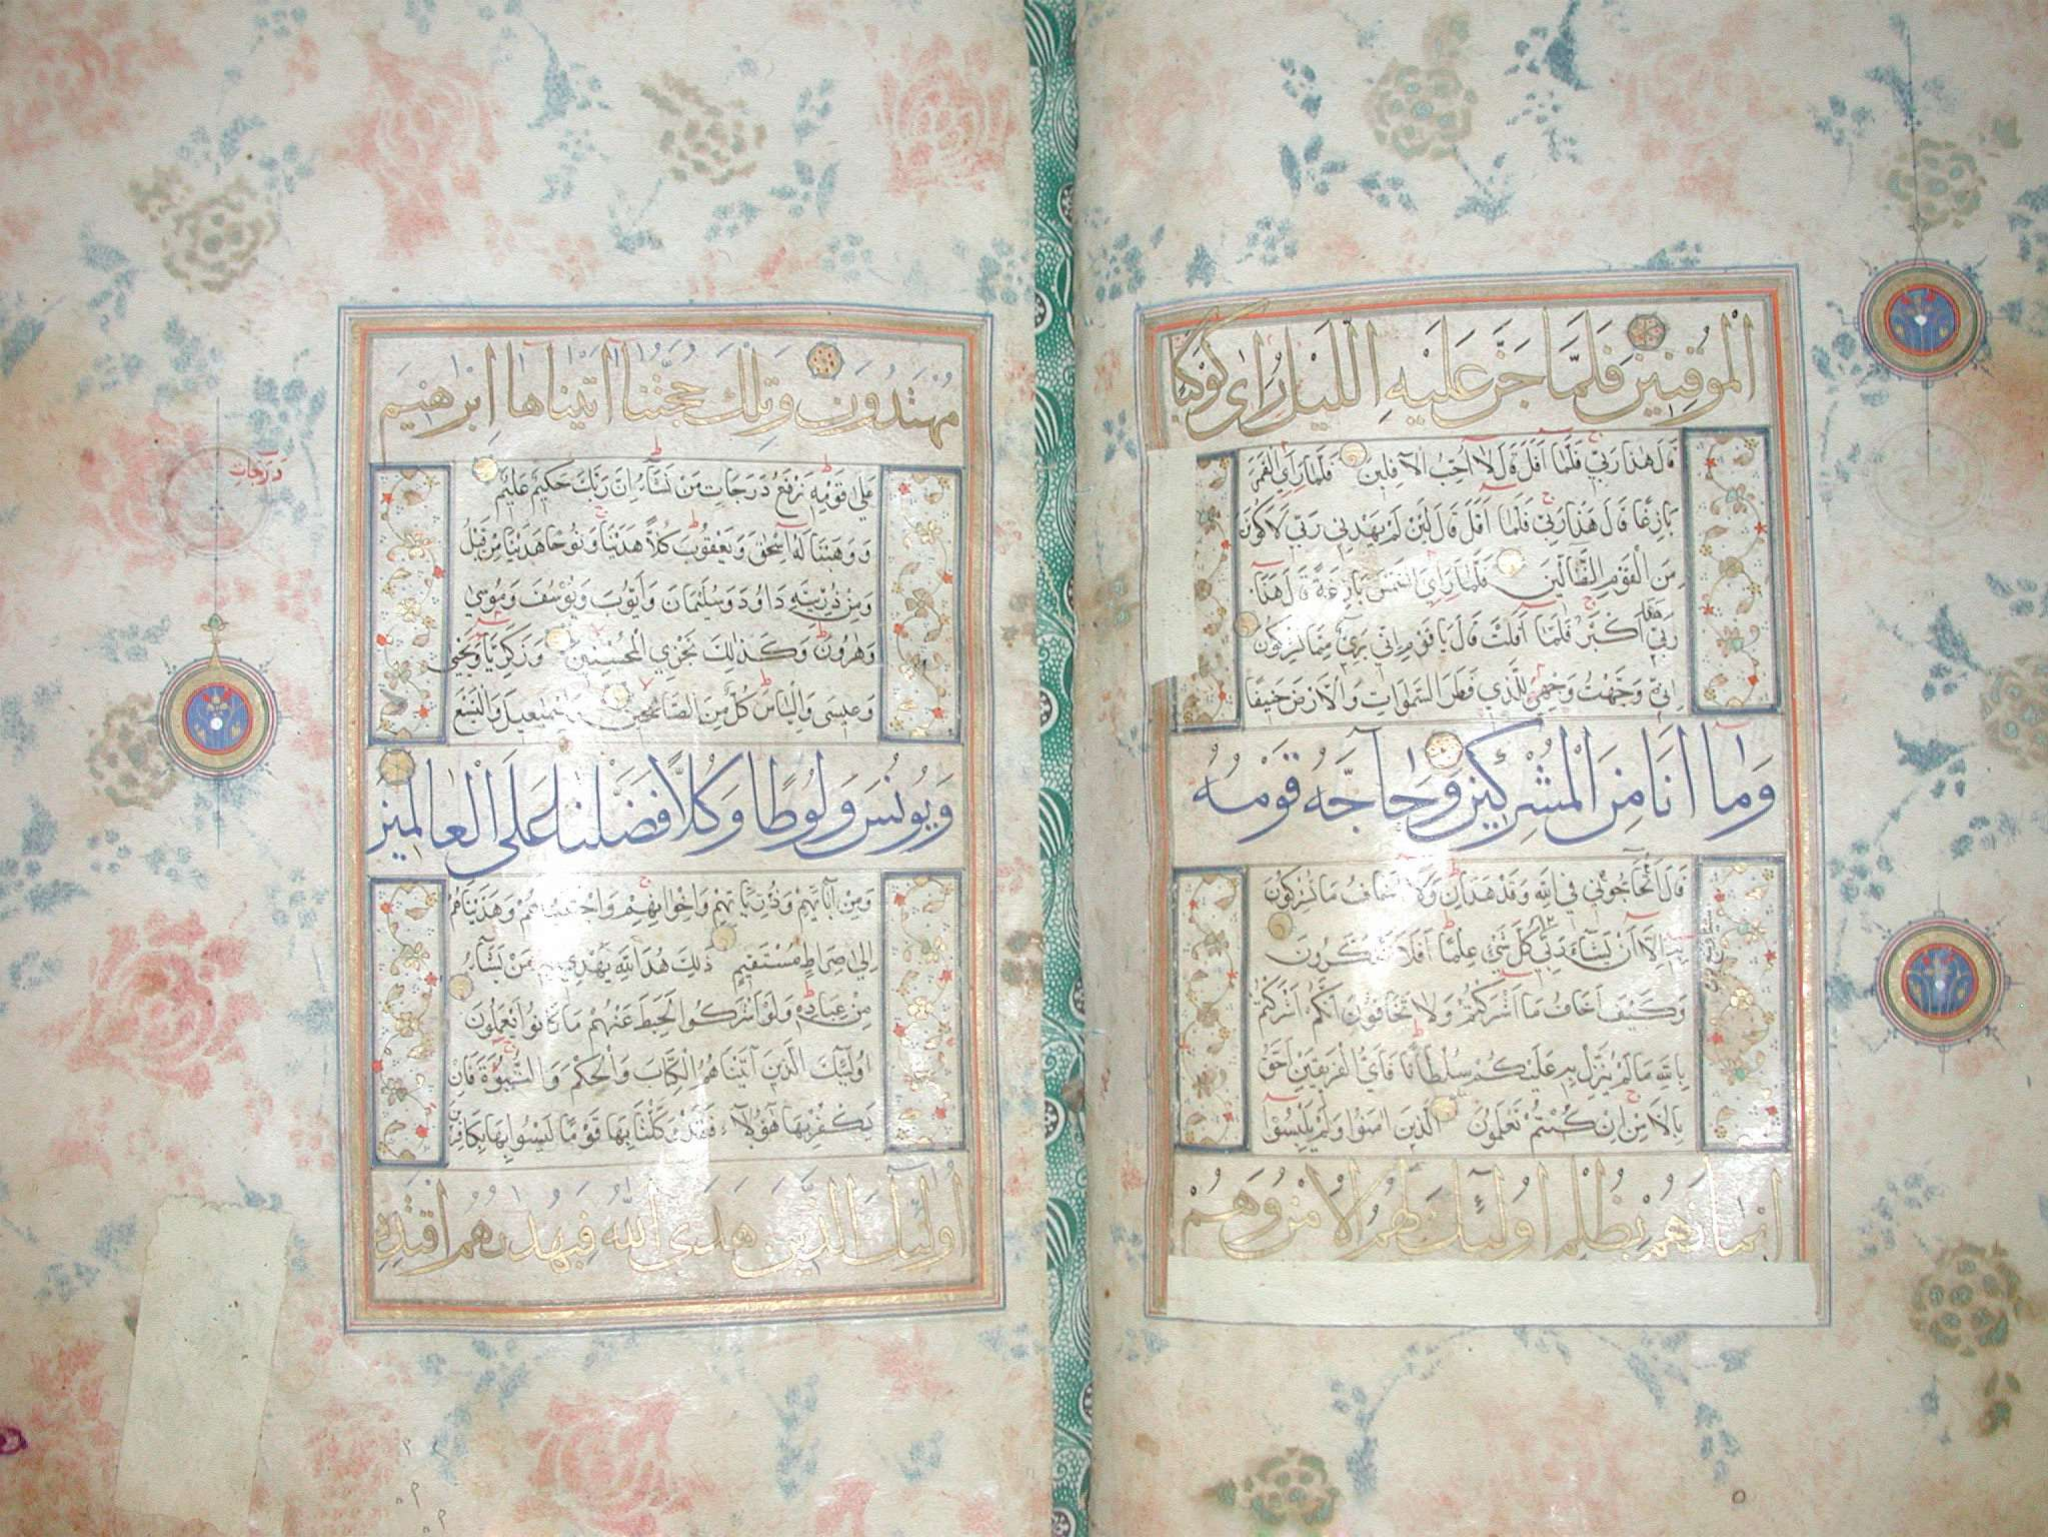 الموقنين فلما جن عليه الليل رأى كوكبا
قال هذا ربي فلما أفل قال لا أحب الآفلين فلما رأى القمر
بازغا قال هذا ربي فلما أفل قال لئن لم يهدني ربي لأكونن
من القوم الضالين فلما رأى الشمس بازغة قال هذا
ربي هذا أكبر فلما أفلت قال يا قوم إني بريء مما تشركون
إني وجهت وجهي للذي فطر السموات والأرض حنيفا
وما أنا من المشركين وحاجه قومه
قال أتحاجوني في الله وقد هدان ولا أخاف ما تشركون
به إلا أن يشاء ربي كل شيء علما أفلا تتذكرون
وكيف أخاف ما أشركتم ولا تخافون أنكم أشركتم
بالله ما لم ينزل به عليكم سلطانا فأي الفريقين أحق
بالأمن إن كنتم تعلمون الذين آمنوا ولم يلبسوا
إيمانهم بظلم أولئك لهم الأمن وهم
مهتدون وتلك حجتنا آتيناها إبرهيم
على قومه نرفع درجات من نشاء إن ربك حكيم عليم
درجات
ووهبنا له إسحق ويعقوب كلا هدينا ونوحا هدينا من قبل
ومن ذريته داود وسليمان وأيوب ويوسف وموسى
وهرون وكذلك نجزي المحسنين وزكريا ويحيى
وعيسى والياس كل من الصالحين وإسمعيل واليسع
ويونس ولوطا وكلا فضلنا على العالمين
ومن آبائهم وذرياتهم وإخوانهم واجتبيناهم وهديناهم
إلى صراط مستقيم ذلك هدى الله يهدي به من يشاء
من عباده ولو أشركوا لحبط عنهم ما كانوا يعملون
أولئك الذين آتيناهم الكتاب والحكم والنبوة فإن
يكفر بها هؤلاء فقد وكلنا بها قوما ليسوا بها بكافرين
أولئك الذين هدى الله فبهديهم اقتده